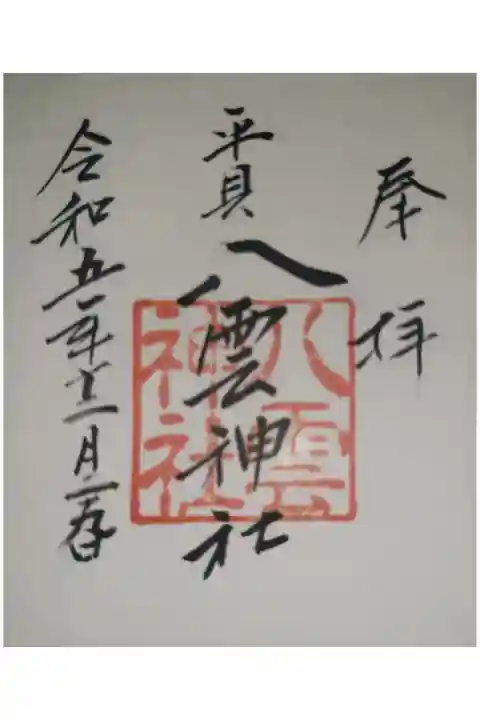 奉拝
平貝
八雲神社
令和五年十二月日
八雲
神社